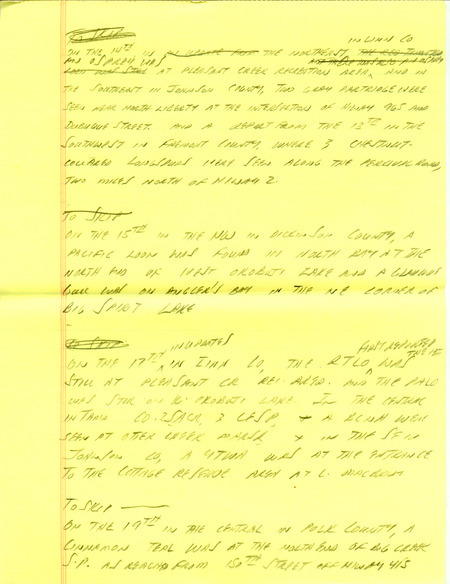 To SKIP
IN LINN CO
ON THE 14TH IN THE NORTHEAST,
AND OSPREY WAS
AT PLEASANT CREEK RECREATION AREA, AND IN
THE SOUTHEAST IN JOHNSON COUNTY, TWO GRAY PARTRIDGE WERE
SEEN NEAR NORTH LIBERTY AT THE INTERSECTION OF HIWAY 965 AND
DUBUQUE STREET. AND A REPORT FROM THE 13TH IN THE
SOUTHWEST IN FREMONT COUNTY, WHERE 3 CHESTNUT-
COLLARED LONGSPURS WERE SEEN ALONG THE PERCIVAL ROAD,
TWO MILES NORTH OF HIWAY 2.
To SKIP
ON THE 15TH IN THE NW IN DICKINSON COUNTY, A
PACIFIC LOON WAS FOUND IN NORTH BAY AT THE
NORTH END OF WEST OKOBOJI LAKE AND A GLAUCOUS
GULL WAS ON ANGLER'S BAY IN THE NE CORNER OF
BIG SPIRIT LAKE
To SKIP
IN UPDATES FIRST REPORTED
ON THE 17TH, IN LINN CO, THE RTLO WAS
STILL AT PLEASANT CR REC. AREA. AND THE PALO
WAS STILL ON W. OKOBOJI LAKE. IN THE CENTER
IN TAMA CO. 2 SACR, 3 LESP, + A
SEEN AT OTTER CREEK MARSH + IN THE SE IN
JOHNSON CO, A WAS AT THE ENTRANCE
TO THE COTTAGE RESERVE AREA AT L. MACBRIDE
To SKIP
ON THE 19TH IN THE CENTRAL IN POLK COUNTY, A
CINNAMON TEAL WAS AT THE NORTH END OF BIG CREEK
S.P. AS REACHED FROM 150TH STREET OFF HIWAY 415